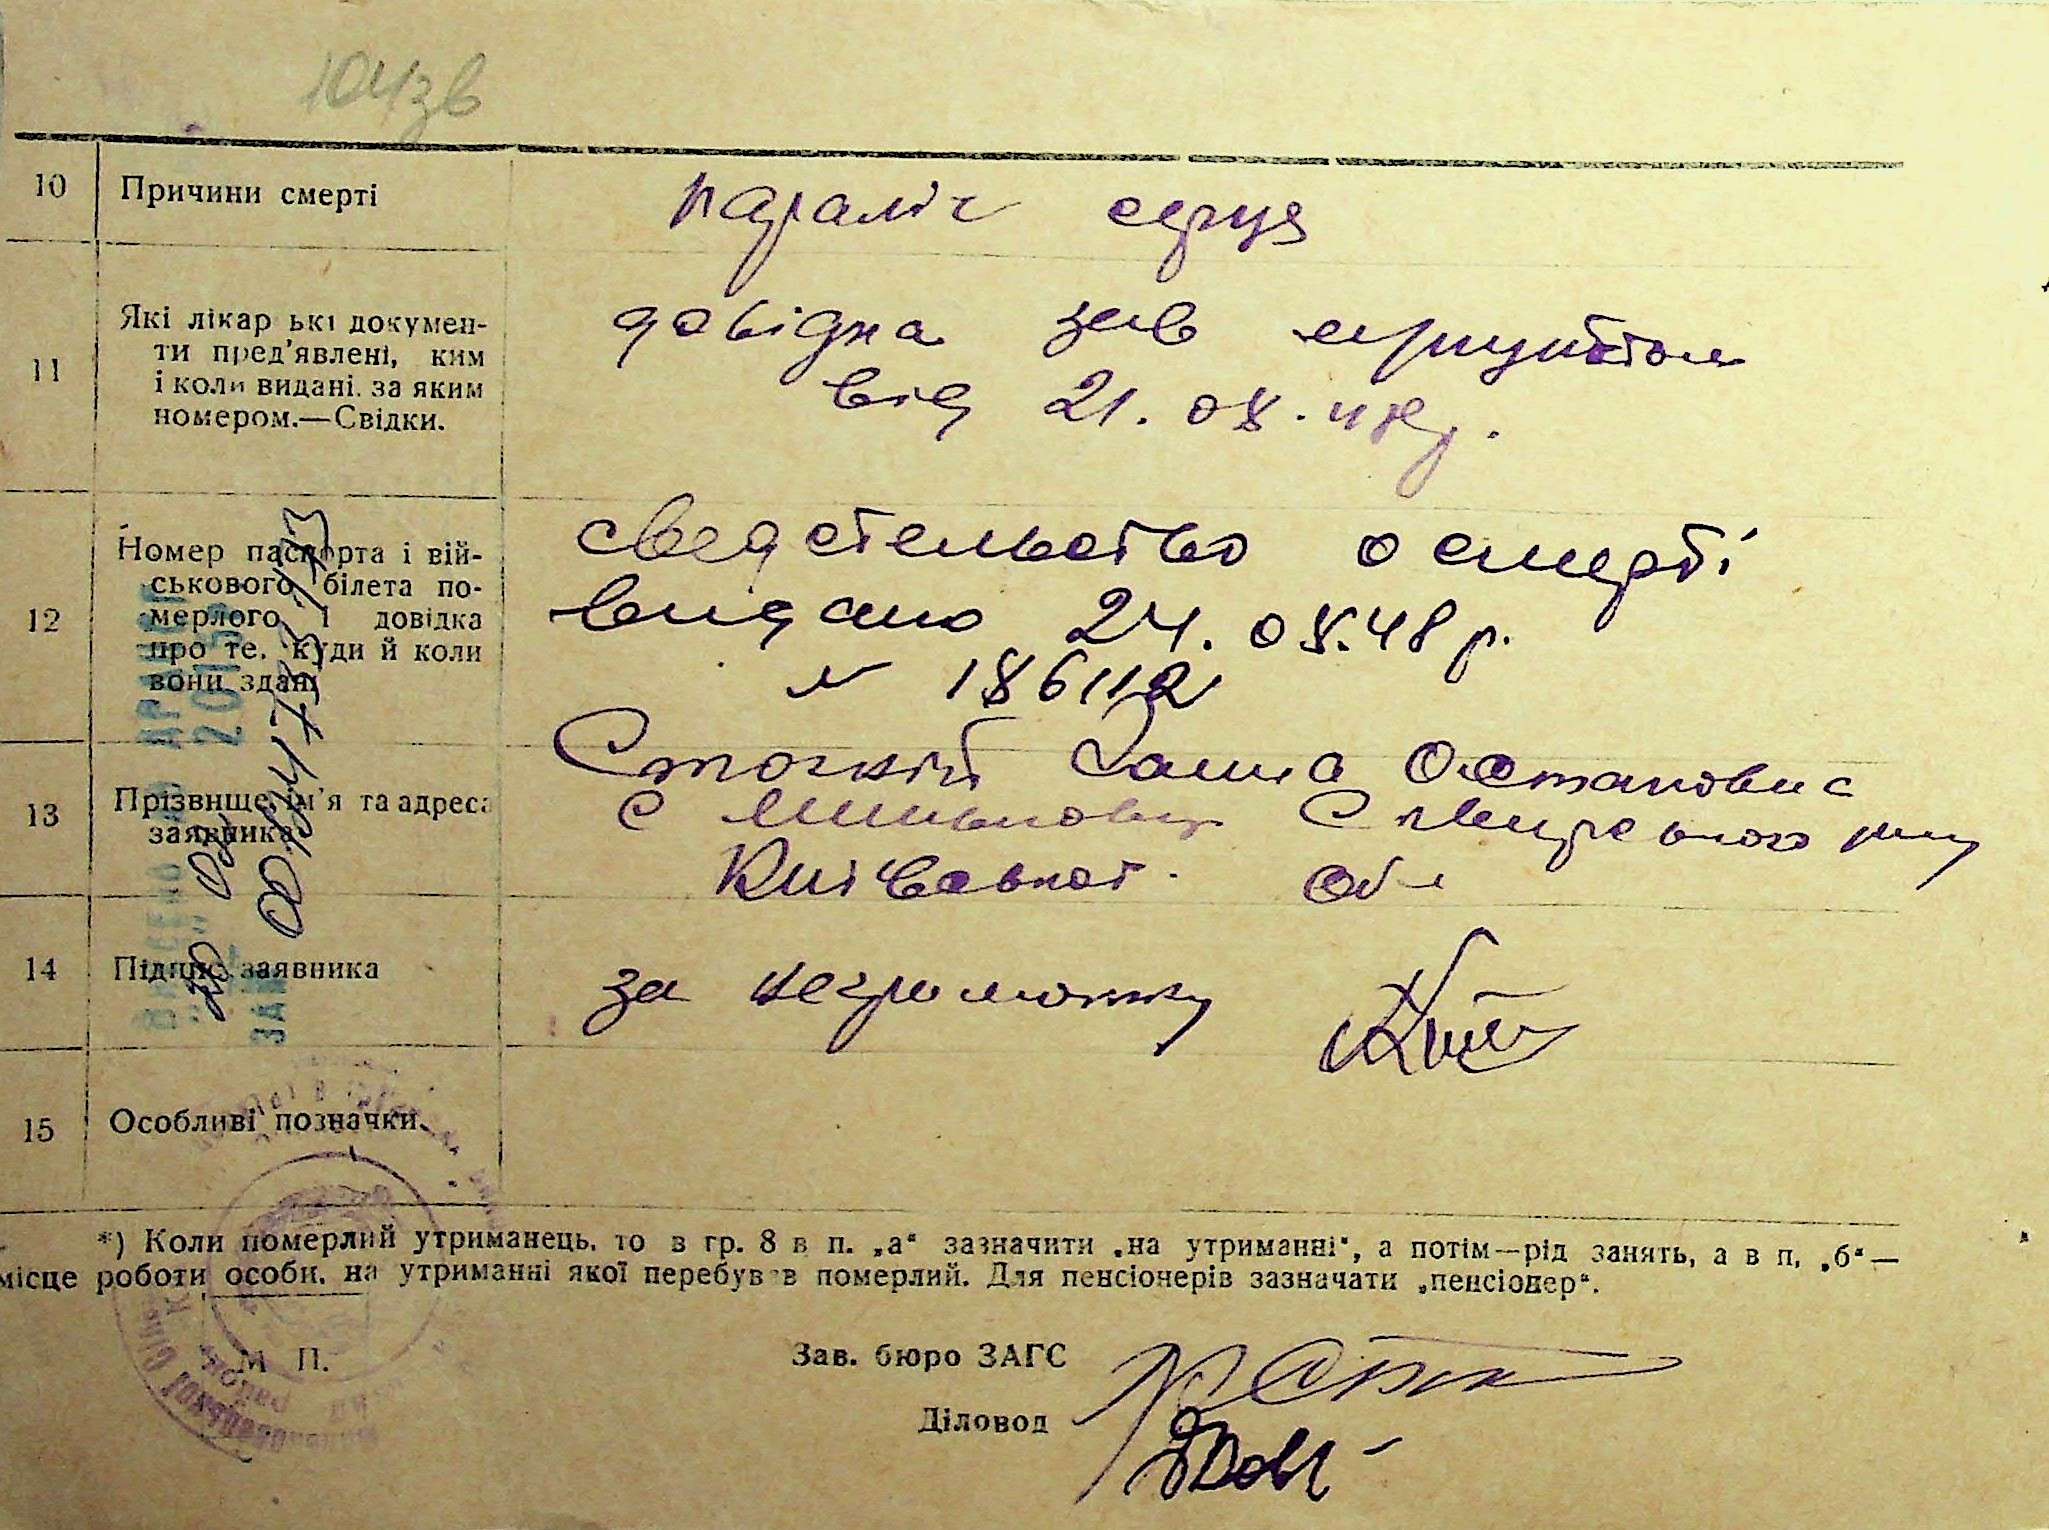 104зв
10 Причини смерті
параліч серця
11 Які лікар ькі докумен-
ти пред'явлені, ким
і коли видані. за яким
номером.—Свідки.
довідка зав
від 21.08.48р.
12 Номер паспорта і вій-
ськового білета по-
мерлого і довідка
про те, куди й коли
вони здані
сведетельство о смерті
видано 24.08.48 р.
№ 186112
13 Прізвище, ім'я та адреса
заявника
Остаповна
с
Київської обл
14 Підпис заявника
за неграмотну
15 Особливі позначки.
*) Коли померлий утриманець, то в гр. 8 в п. „а“ зазначити „на утриманні“, а потім—рід занять, а в п. „б“—
місце роботи особи, на утриманні якої перебував померлий. Для пенсіонерів зазначати „пенсіонер“.
М П.
Зав. бюро ЗАГС
Діловод